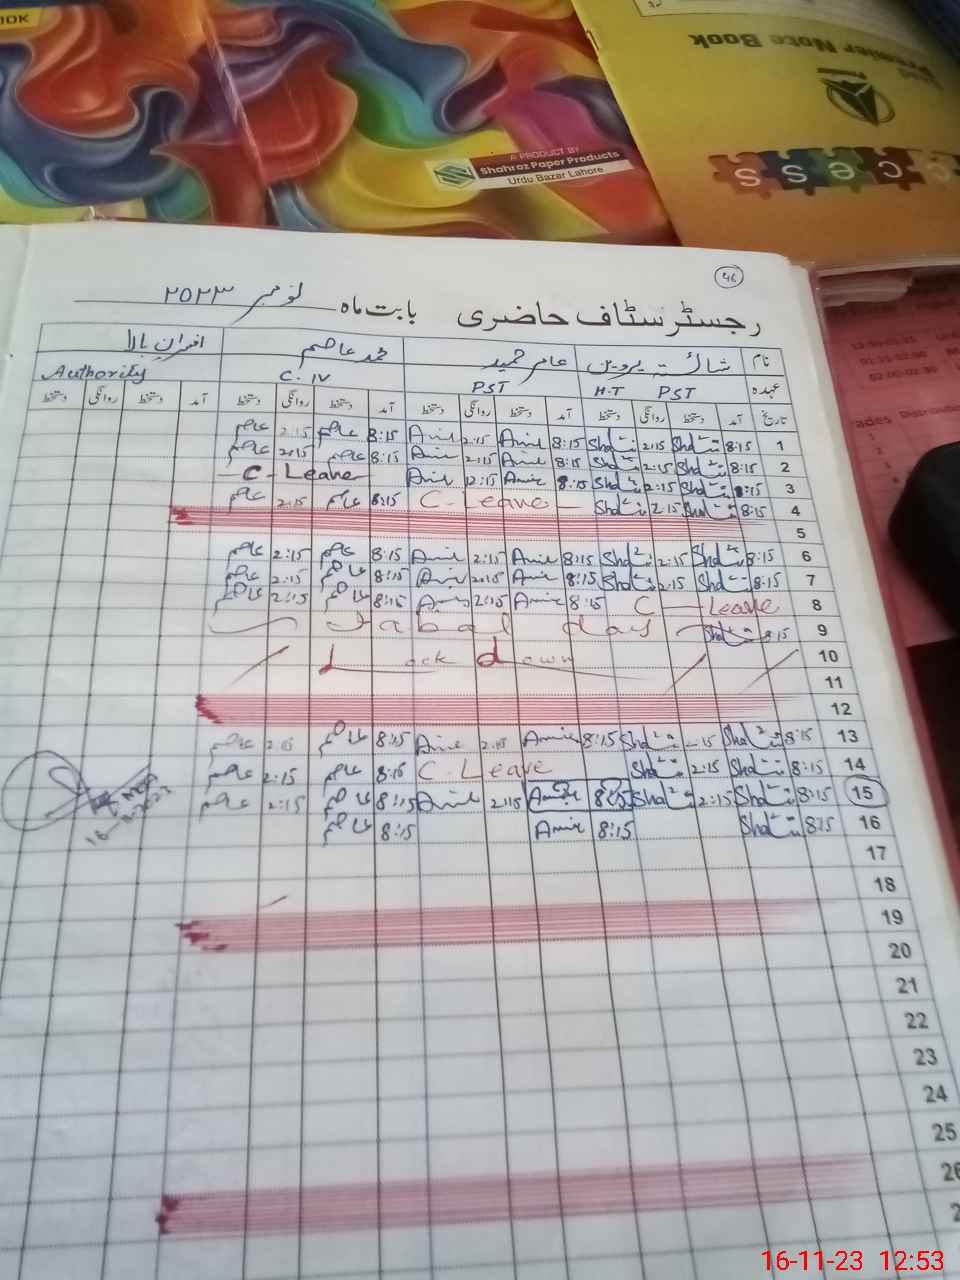 OOK
A PRODUCT BY
Shahraz Paper Products
Urdu Bazar Lahore
Premier Note Book
ccess
46
رجسٹر سٹاف حاضری بابت ماہ نومبر ۲۰۲۳
نام شائستہ پروین عامر حمید محمد عاصم افسران بالا
عہدہ H.T PST PST C.IV Authority
تاریخ آمد دستخط روانگی دستخط آمد دستخط روانگی دستخط آمد دستخط روانگی دستخط آمد دستخط روانگی دستخط
1 8:15 2:15 8:15 Amir 2:15 Amir 8:15 عاصم 2:15 عاصم
2 8:15 2:15 8:15 Amir 2:15 Amir 8:15 عاصم 2:15 عاصم
3 8:15 2:15 8:15 Amir 2:15 Amir C-Leave
4 8:15 2:15 C-Leave 8:15 عاصم 2:15 عاصم
5
6 8:15 2:15 8:15 Amir 2:15 Amir 8:15 عاصم 2:15 عاصم
7 8:15 2:15 8:15 Amir 2:15 Amir 8:15 عاصم 2:15 عاصم
8 C-Leave 8:15 Amir 2:15 Amir 8:15 عاصم 2:15 عاصم
9 8:15 Iqbal day
10 Lock Down
11
12
13 8:15 2:15 8:15 Amir 2:15 Amir 8:15 عاصم 2:15 عاصم
14 8:15 2:15 C-Leave 8:15 عاصم 2:15 عاصم
15 8:15 2:15 8:15 Amir 2:15 Amir 8:15 عاصم 2:15 عاصم
16 8:15 8:15 Amir 8:15 عاصم
17
18
19
20
21
22
23
24
25
26
2
16-11-23 12:53